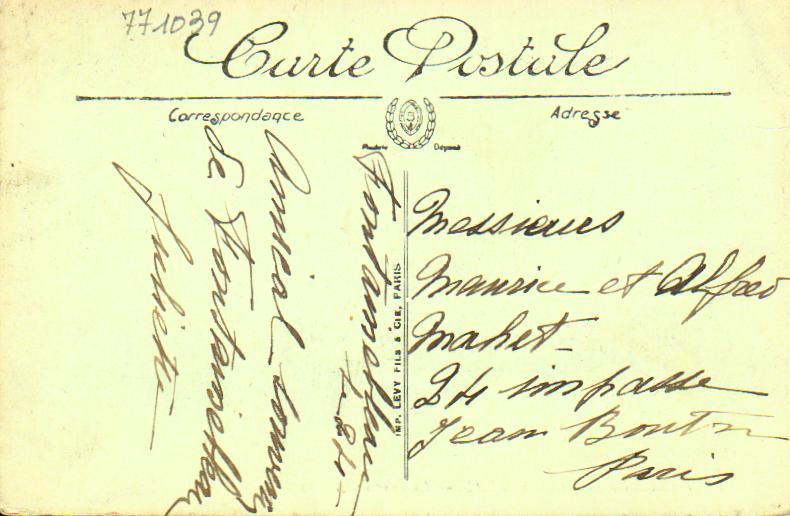 771039
Carte Postale
Correspondance
Adresse
Modèle Déposé
Fontainebleau
Amical souvenir
de Fontainebleau
Juliette
IMP. LEVY FILS & CIE, PARIS
Messieurs
Maurice et Alfred
Mahet
24 impasse
Jean Bouton
Paris